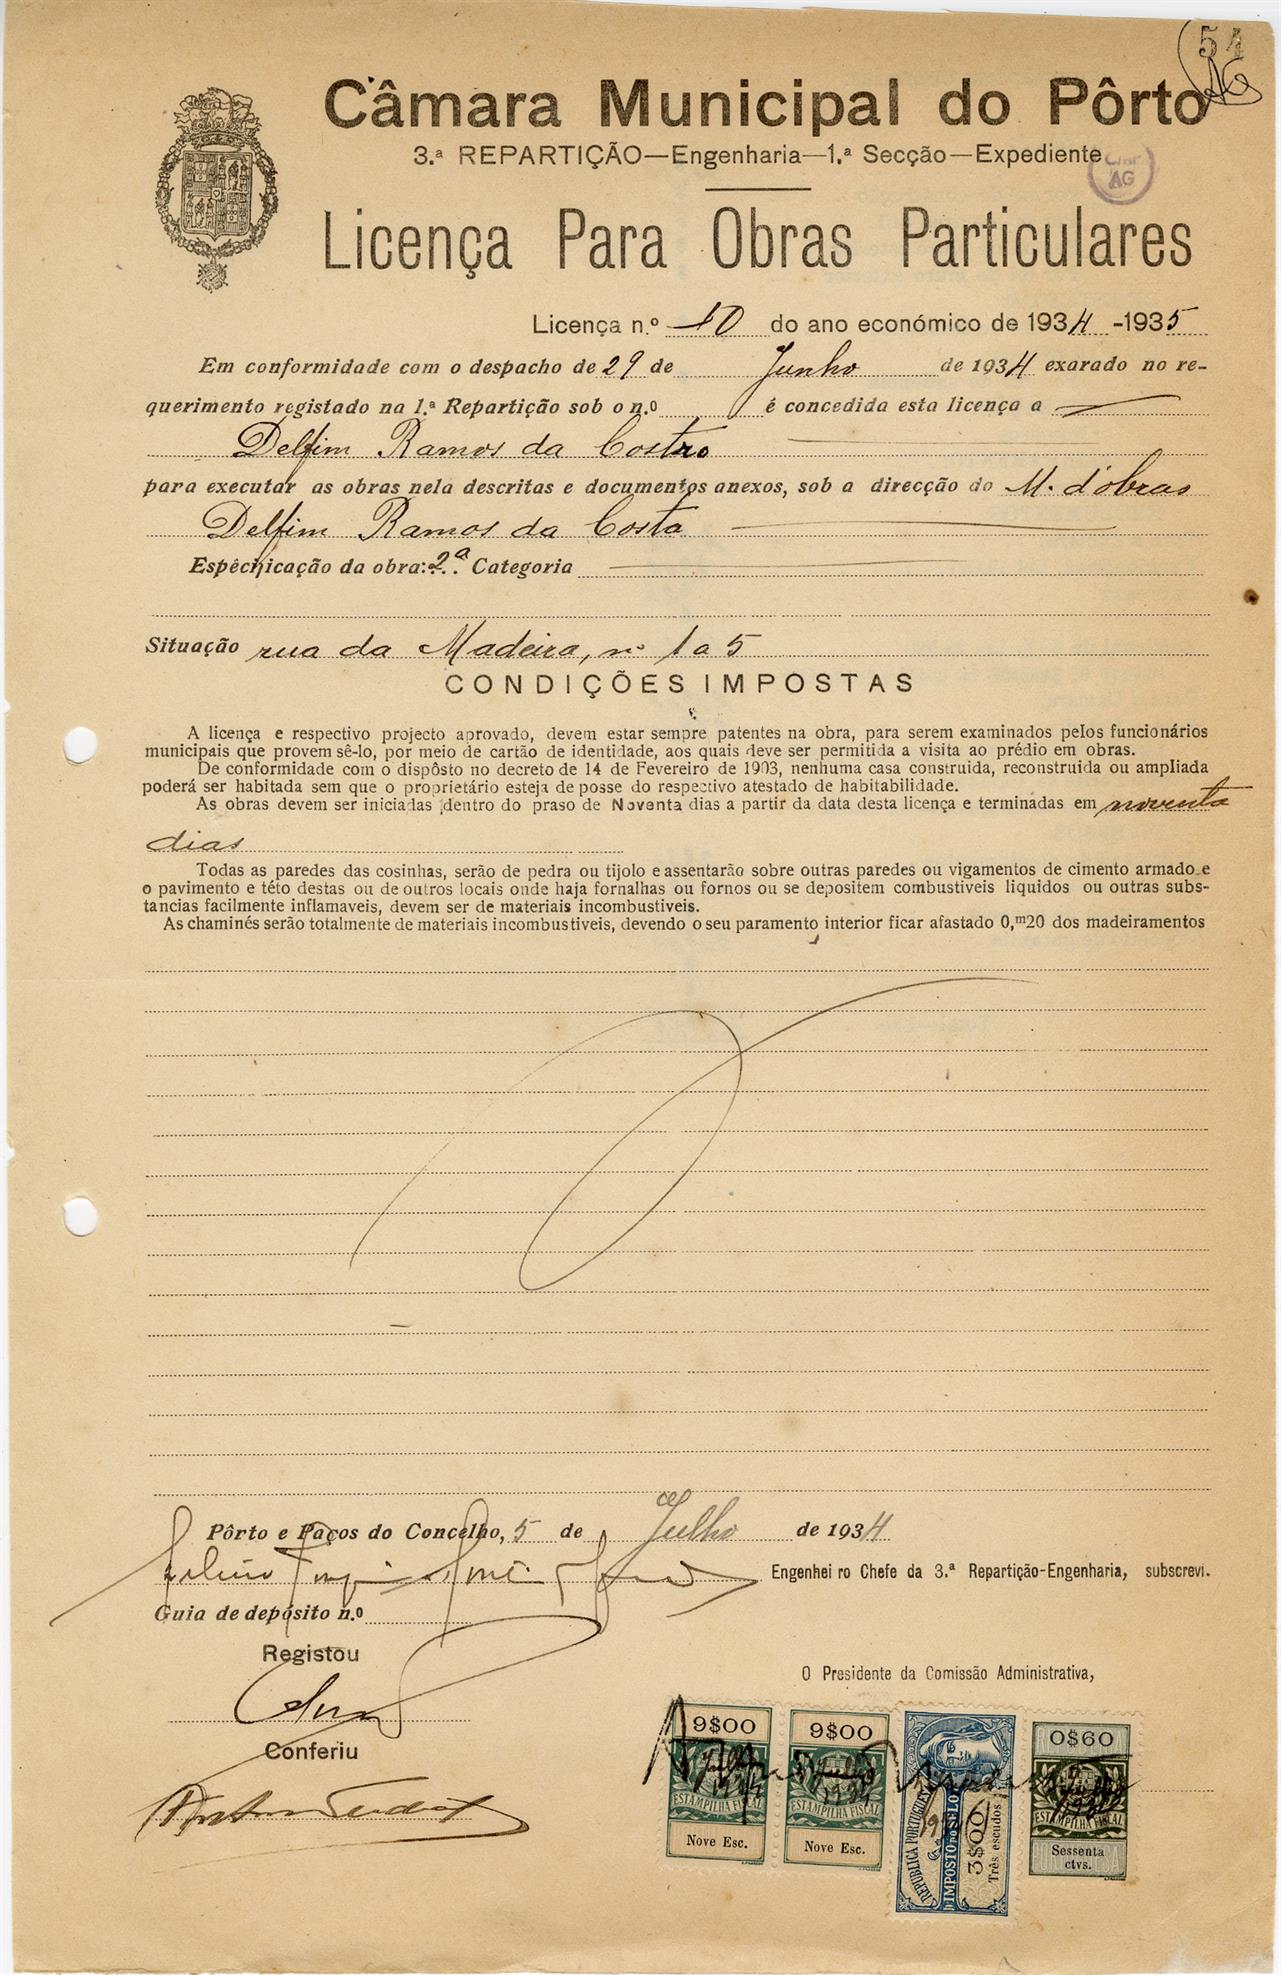 54
AG
Câmara Municipal do Pôrto
3.ª REPARTIÇÃO—Engenharia—1.ª Secção—Expediente
CMP
AG
Licença Para Obras Particulares
Licença n.º 10 do ano económico de 1934 -1935
Em conformidade com o despacho de 29 de Junho de 1934 exarado no re-
querimento registado na 1.ª Repartição sob o n.º é concedida esta licença a
Delfim Ramos da Costa
para executar as obras nela descritas e documentos anexos, sob a direcção do M. d'obras
Delfim Ramos da Costa
Espêcificação da obra: 2ª Categoria
Situação rua da Madeira, nº 1 a 5
CONDIÇÕES IMPOSTAS
A licença e respectivo projecto aprovado, devem estar sempre patentes na obra, para serem examinados pelos funcionários
municipais que provem sê-lo, por meio de cartão de identidade, aos quais deve ser permitida a visita ao prédio em obras.
De conformidade com o dispôsto no decreto de 14 de Fevereiro de 1903, nenhuma casa construida, reconstruida ou ampliada
poderá ser habitada sem que o proprietário esteja de posse do respectivo atestado de habitabilidade.
As obras devem ser iniciadas dentro do praso de Noventa dias a partir da data desta licença e terminadas em noventa
dias
Todas as paredes das cosinhas, serão de pedra ou tijolo e assentarão sobre outras paredes ou vigamentos de cimento armado e
o pavimento e této destas ou de outros locais onde haja fornalhas ou fornos ou se depositem combustiveis liquidos ou outras subs-
tancias facilmente inflamaveis, devem ser de materiais incombustiveis.
As chaminés serão totalmente de materiais incombustiveis, devendo o seu paramento interior ficar afastado 0,ᵐ20 dos madeiramentos
Pôrto e Paços do Concelho, 5 de Julho de 1934
Engenheiro Chefe da 3.ª Repartição-Engenharia, subscrevi.
Guia de depósito n.º
Registou
O Presidente da Comissão Administrativa,
Conferiu
9$00
ESTAMPILHA FISCAL
Nove Esc.
9$00
ESTAMPILHA FISCAL
Nove Esc.
REPUBLICA PORTUGUESA
IMPOSTO DO SELO
3$00
Três escudos
0$60
ESTAMPILHA FISCAL
Sessenta
ctvs.